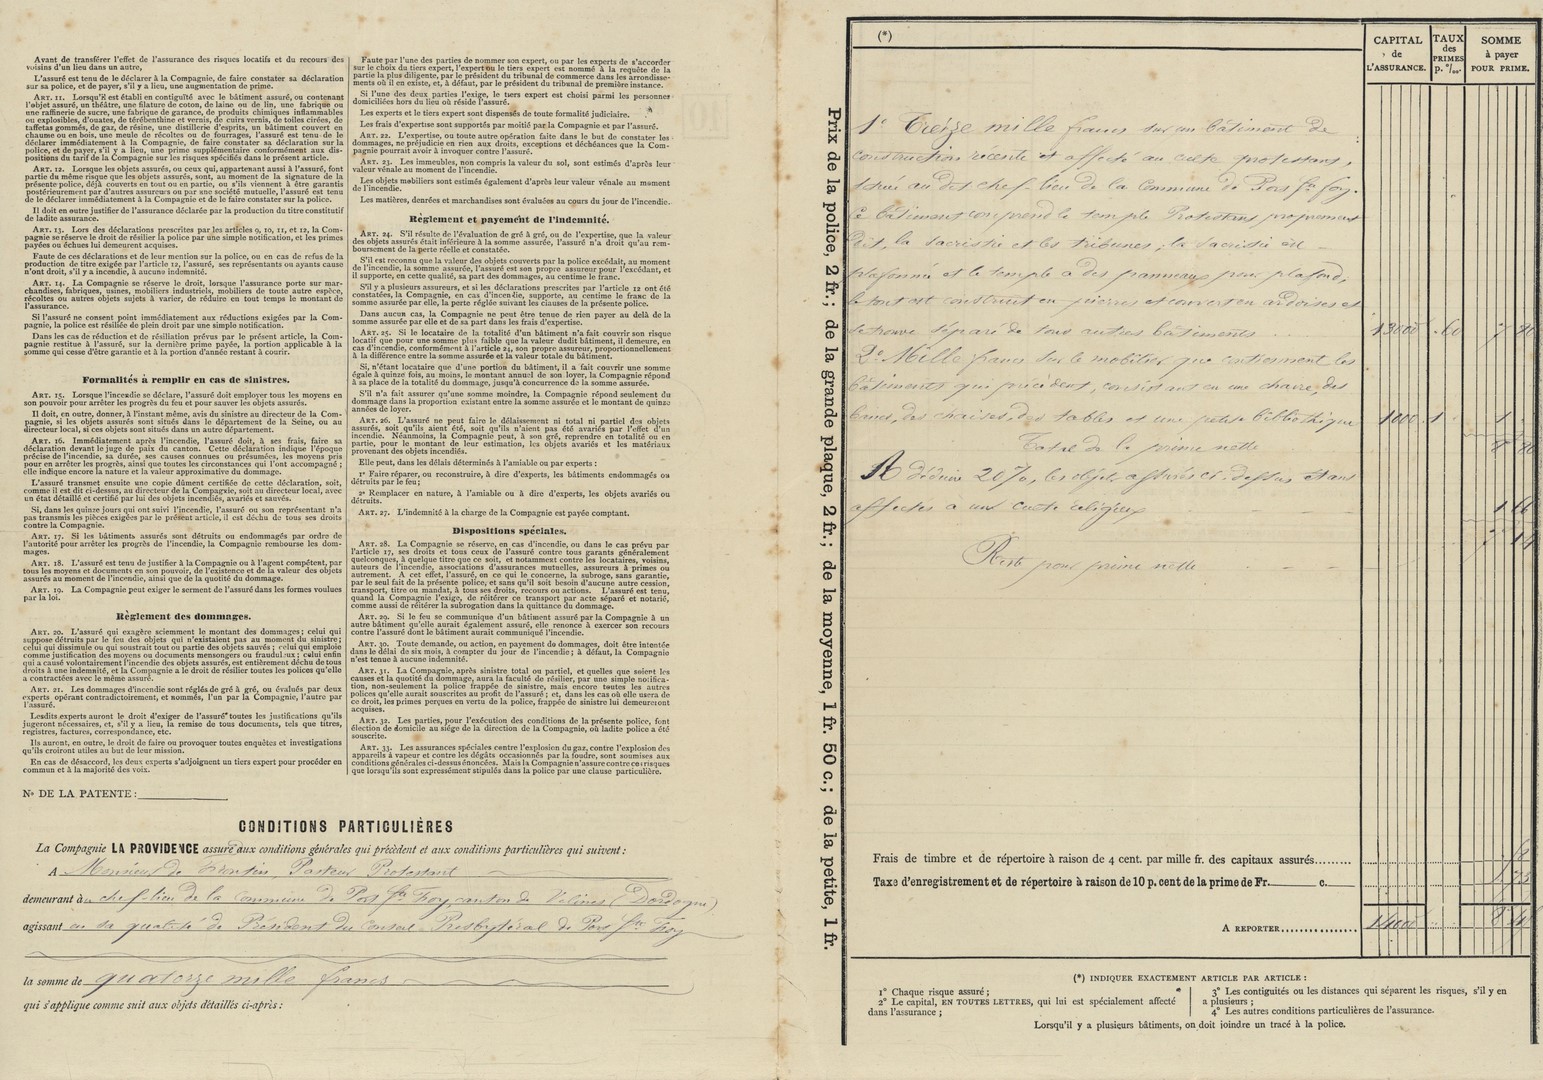 Avant de transférer l'effet de l'assurance des risques locatifs et du recours des
voisins d'un lieu dans un autre,
L'assuré est tenu de le déclarer à la Compagnie, de faire constater sa déclaration
sur sa police, et de payer, s'il y a lieu, une augmentation de prime.
ART. 11. Lorsqu'il est établi en contiguité avec le bâtiment assuré, ou contenant
l'objet assuré, un théâtre, une filature de coton, de laine ou de lin, une fabrique ou
une raffinerie de sucre, une fabrique de garance, de produits chimiques inflammables
ou explosibles, d'ouates, de térébenthine et vernis, de cuirs vernis, de toiles cirées, de
taffetas gommés, de gaz, de résine, une distillerie d'esprits, un bâtiment couvert en
chaume ou en bois, une meule de récoltes ou de fourrages, l'assuré est tenu de le
déclarer immédiatement à la Compagnie, de faire constater sa déclaration sur la
police, et de payer, s'il y a lieu, une prime supplémentaire conformément aux dis-
positions du tarif de la Compagnie sur les risques spécifiés dans le présent article.
ART. 12. Lorsque les objets assurés, ou ceux qui, appartenant aussi à l'assuré, font
partie du même risque que les objets assurés, sont, au moment de la signature de la
présente police, déjà couverts en tout ou en partie, ou s'ils viennent à être garantis
postérieurement par d'autres assureurs ou par une société mutuelle, l'assuré est tenu
de le déclarer immédiatement à la Compagnie et de faire constater sur la police.
Il doit en outre justifier de l'assurance déclarée par la production du titre constitutif
de ladite assurance.
ART. 13. Lors des déclarations prescrites par les articles 9, 10, 11, et 12, la Com-
pagnie se réserve le droit de résilier la police par une simple notification, et les primes
payées ou échues lui demeurent acquises.
Faute de ces déclarations et de leur mention sur la police, ou en cas de refus de la
production de titre exigée par l'article 12, l'assuré, ses représentants ou ayants cause
n'ont droit, s'il y a incendie, à aucune indemnité.
ART. 14. La Compagnie se réserve le droit, lorsque l'assurance porte sur mar-
chandises, fabriques, usines, mobiliers industriels, mobiliers de toute autre espèce,
récoltes ou autres objets sujets à varier, de réduire en tout temps le montant de
l'assurance.
Si l'assuré ne consent point immédiatement aux réductions exigées par la Com-
pagnie, la police est résiliée de plein droit par une simple notification.
Dans les cas de réduction et de résiliation prévus par le présent article, la Com-
pagnie restitue à l'assuré, sur la dernière prime payée, la portion applicable à la
somme qui cesse d'être garantie et à la portion d'année restant à courir.
Formalités à remplir en cas de sinistres.
ART. 15. Lorsque l'incendie se déclare, l'assuré doit employer tous les moyens en
son pouvoir pour arrêter les progrès du feu et pour sauver les objets assurés.
Il doit, en outre, donner, à l'instant même, avis du sinistre au directeur de la Com-
pagnie, si les objets assurés sont situés dans le département de la Seine, ou au
directeur local, si ces objets sont situés dans un autre département.
ART. 16. Immédiatement après l'incendie, l'assuré doit, à ses frais, faire sa
déclaration devant le juge de paix du canton. Cette déclaration indique l'époque
précise de l'incendie, sa durée, ses causes connues ou présumées, les moyens pris
pour en arrêter les progrès, ainsi que toutes les circonstances qui l'ont accompagné ;
elle indique encore la nature et la valeur approximative du dommage.
L'assuré transmet ensuite une copie dûment certifiée de cette déclaration, soit,
comme il est dit ci-dessus, au directeur de la Compagnie, soit au directeur local, avec
un état détaillé et certifié par lui des objets incendiés, avariés et sauvés.
Si, dans les quinze jours qui ont suivi l'incendie, l'assuré ou son représentant n'a
pas transmis les pièces exigées par le présent article, il est déchu de tous ses droits
contre la Compagnie.
ART. 17. Si les bâtiments assurés sont détruits ou endommagés par ordre de
l'autorité pour arrêter les progrès de l'incendie, la Compagnie rembourse les dom-
mages.
ART. 18. L'assuré est tenu de justifier à la Compagnie ou à l'agent compétent, par
tous les moyens et documents en son pouvoir, de l'existence et de la valeur des objets
assurés au moment de l'incendie, ainsi que de la quotité du dommage.
ART. 19. La Compagnie peut exiger le serment de l'assuré dans les formes voulues
par la loi.
Règlement des dommages.
ART. 20. L'assuré qui exagère sciemment le montant des dommages ; celui qui
suppose détruits par le feu des objets qui n'existaient pas au moment du sinistre ;
celui qui dissimule ou qui soustrait tout ou partie des objets sauvés ; celui qui emploie
comme justification des moyens ou documents mensongers ou frauduleux ; celui enfin
qui a causé volontairement l'incendie des objets assurés, est entièrement déchu de tous
droits à une indemnité, et la Compagnie a le droit de résilier toutes les polices qu'elle
a contractées avec le même assuré.
ART. 21. Les dommages d'incendie sont réglés de gré à gré, ou évalués par deux
experts opérant contradictoirement, et nommés, l'un par la Compagnie, l'autre par
l'assuré.
Lesdits experts auront le droit d'exiger de l'assuré toutes les justifications qu'ils
jugeront nécessaires, et, s'il y a lieu, la remise de tous documents, tels que titres,
registres, factures, correspondance, etc.
Ils auront, en outre, le droit de faire ou provoquer toutes enquêtes et investigations
qu'ils croiront utiles au but de leur mission.
En cas de désaccord, les deux experts s'adjoignent un tiers expert pour procéder en
commun et à la majorité des voix.
Faute par l'une des parties de nommer son expert, ou par les experts de s'accorder
sur le choix du tiers expert, l'expert ou le tiers expert est nommé à la requête de la
partie la plus diligente, par le président du tribunal de commerce dans les arrondisse-
ments où il en existe, et, à défaut, par le président du tribunal de première instance.
Si l'une des deux parties l'exige, le tiers expert est choisi parmi les personnes
domiciliées hors du lieu où réside l'assuré.
Les experts et le tiers expert sont dispensés de toute formalité judiciaire.
Les frais d'expertise sont supportés par moitié par la Compagnie et par l'assuré.
ART. 22. L'expertise, ou toute autre opération faite dans le but de constater les
dommages, ne préjudicie en rien aux droits, exceptions et déchéances que la Com-
pagnie pourrait avoir à invoquer contre l'assuré.
ART. 23. Les immeubles, non compris la valeur du sol, sont estimés d'après leur
valeur vénale au moment de l'incendie.
Les objets mobiliers sont estimés également d'après leur valeur vénale au moment
de l'incendie.
Les matières, denrées et marchandises sont évaluées au cours du jour de l'incendie.
Règlement et payement de l'indemnité.
ART. 24. S'il résulte de l'évaluation de gré à gré, ou de l'expertise, que la valeur
des objets assurés était inférieure à la somme assurée, l'assuré n'a droit qu'au rem-
boursement de la perte réelle et constatée.
S'il est reconnu que la valeur des objets couverts par la police excédait, au moment
de l'incendie, la somme assurée, l'assuré est son propre assureur pour l'excédant, et
il supporte, en cette qualité, sa part des dommages, au centime le franc.
S'il y a plusieurs assureurs, et si les déclarations prescrites par l'article 12 ont été
constatées, la Compagnie, en cas d'incendie, supporte, au centime le franc de la
somme assurée par elle, la perte réglée suivant les clauses de la présente police.
Dans aucun cas, la Compagnie ne peut être tenue de rien payer au delà de la
somme assurée par elle et de sa part dans les frais d'expertise.
ART. 25. Si le locataire de la totalité d'un bâtiment n'a fait couvrir son risque
locatif que pour une somme plus faible que la valeur dudit bâtiment, il demeure, en
cas d'incendie, conformément à l'article 24, son propre assureur, proportionnellement
à la différence entre la somme assurée et la valeur totale du bâtiment.
Si, n'étant locataire que d'une portion du bâtiment, il a fait couvrir une somme
égale à quinze fois, au moins, le montant annuel de son loyer, la Compagnie répond
à sa place de la totalité du dommage, jusqu'à concurrence de la somme assurée.
S'il n'a fait assurer qu'une somme moindre, la Compagnie répond seulement du
dommage dans la proportion existante entre la somme assurée et le montant de quinze
années de loyer.
ART. 26. L'assuré ne peut faire le délaissement ni total ni partiel des objets
assurés, soit qu'ils aient été, soit qu'ils n'aient pas été avariés par l'effet d'un
incendie. Néanmoins, la Compagnie peut, à son gré, reprendre en totalité ou en partie,
pour le montant de leur estimation, les objets avariés et les matériaux
provenant des objets incendiés.
Elle peut, dans les délais déterminés à l'amiable ou par experts :
1º Faire réparer, ou reconstruire, à dire d'experts, les bâtiments endommagés ou
détruits par le feu ;
2º Remplacer en nature, à l'amiable ou à dire d'experts, les objets avariés ou
détruits.
ART. 27. L'indemnité à la charge de la Compagnie est payée comptant.
Dispositions spéciales.
ART. 28. La Compagnie se réserve, en cas d'incendie, ou dans le cas prévu par
l'article 17, ses droits et tous ceux de l'assuré contre tous garants généralement
quelconques, à quelque titre que ce soit, et notamment contre les locataires, voisins,
auteurs de l'incendie, associations d'assurances mutuelles, assureurs à primes ou
autrement. A cet effet, l'assuré, en ce qui le concerne, la subroge, sans garantie,
par le seul fait de la présente police, et sans qu'il soit besoin d'aucune autre cession,
transport, titre ou mandat, à tous ses droits, recours ou actions. L'assuré est tenu,
quand la Compagnie l'exige, de réitérer ce transport par acte séparé et notarié,
comme aussi de réitérer la subrogation dans la quittance du dommage.
ART. 29. Si le feu se communique d'un bâtiment assuré par la Compagnie à un
autre bâtiment qu'elle aurait également assuré, elle renonce à exercer son recours
contre l'assuré dont le bâtiment aurait communiqué l'incendie.
ART. 30. Toute demande, ou action, en payement de dommages, doit être intentée
dans le délai de six mois, à compter du jour de l'incendie ; à défaut, la Compagnie
n'est tenue à aucune indemnité.
ART. 31. La Compagnie, après sinistre total ou partiel, et quelles que soient les
causes et la quotité du dommage, aura la faculté de résilier, par une simple notifica-
tion, non-seulement la police frappée de sinistre, mais encore toutes les autres
polices qu'elle aurait souscrites au profit de l'assuré ; et, dans les cas où elle usera de
ce droit, les primes perçues en vertu de la police, frappée de sinistre lui demeureront
acquises.
ART. 32. Les parties, pour l'exécution des conditions de la présente police, font
élection de domicile au siége de la direction de la Compagnie, où ladite police a été
souscrite.
ART. 33. Les assurances spéciales contre l'explosion du gaz, contre l'explosion des
appareils à vapeur et contre les dégâts occasionnés par la foudre, sont soumises aux
conditions générales ci-dessus énoncées. Mais la Compagnie n'assure contre ces risques
que lorsqu'ils sont expressément stipulés dans la police par une clause particulière.
Nº DE LA PATENTE :
CONDITIONS PARTICULIÈRES
La Compagnie LA PROVIDENCE assure aux conditions générales qui précèdent et aux conditions particulières qui suivent :
A Monsieur de Pasteur Protestant
demeurant à chef-lieu de la commune de Port Ste Foy, canton de Velines (Dordogne)
agissant en sa qualité de Président du Conseil Presbytéral de Port Ste Foy
la somme de quatorze mille francs
qui s'applique comme suit aux objets détaillés ci-après :
Prix de la police, 2 fr. ; de la grande plaque, 2 fr. ; de la moyenne, 1 fr. 50 c. ; de la petite, 1 fr.
(*)
CAPITAL de L'ASSURANCE.
TAUX des PRIMES p. º/ₒₒ.
SOMME à payer POUR PRIME.
1º Treize mille francs sur un bâtiment de
construction récente et affecté au culte protestant,
situé au dit chef-lieu de la Commune de Port Ste foy.
Ce bâtiment comprend le temple Protestant proprement
dit, la sacristie et les tribunes ; la sacristie est
plafonnée et le temple a des panneaux pour plafond,
le tout est construit en pierres et couvert en ardoises et
se trouve séparé de tous autres bâtiments 13000 . 60 7 80
2º Mille francs sur le mobilier que contiennent les
bâtiments qui précèdent, consistant en une chaire, des
bancs, des chaises, des tables et une petite bibliothèque 1000 1 1
Total de la prime nette 8 80
A déduire 20 %, les objets assurés ci-dessus étant
affectés à un culte religieux 1 66
Reste pour prime nette 7 14
Frais de timbre et de répertoire à raison de 4 cent. par mille fr. des capitaux assurés
Taxe d'enregistrement et de répertoire à raison de 10 p. cent de la prime de Fr. c.
A REPORTER 14000
(*) INDIQUER EXACTEMENT ARTICLE PAR ARTICLE :
1º Chaque risque assuré ;
2º Le capital, EN TOUTES LETTRES, qui lui est spécialement affecté
dans l'assurance ;
3º Les contiguités ou les distances qui séparent les risques, s'il y en
a plusieurs ;
4º Les autres conditions particulières de l'assurance.
Lorsqu'il y a plusieurs bâtiments, on doit joindre un tracé à la police.